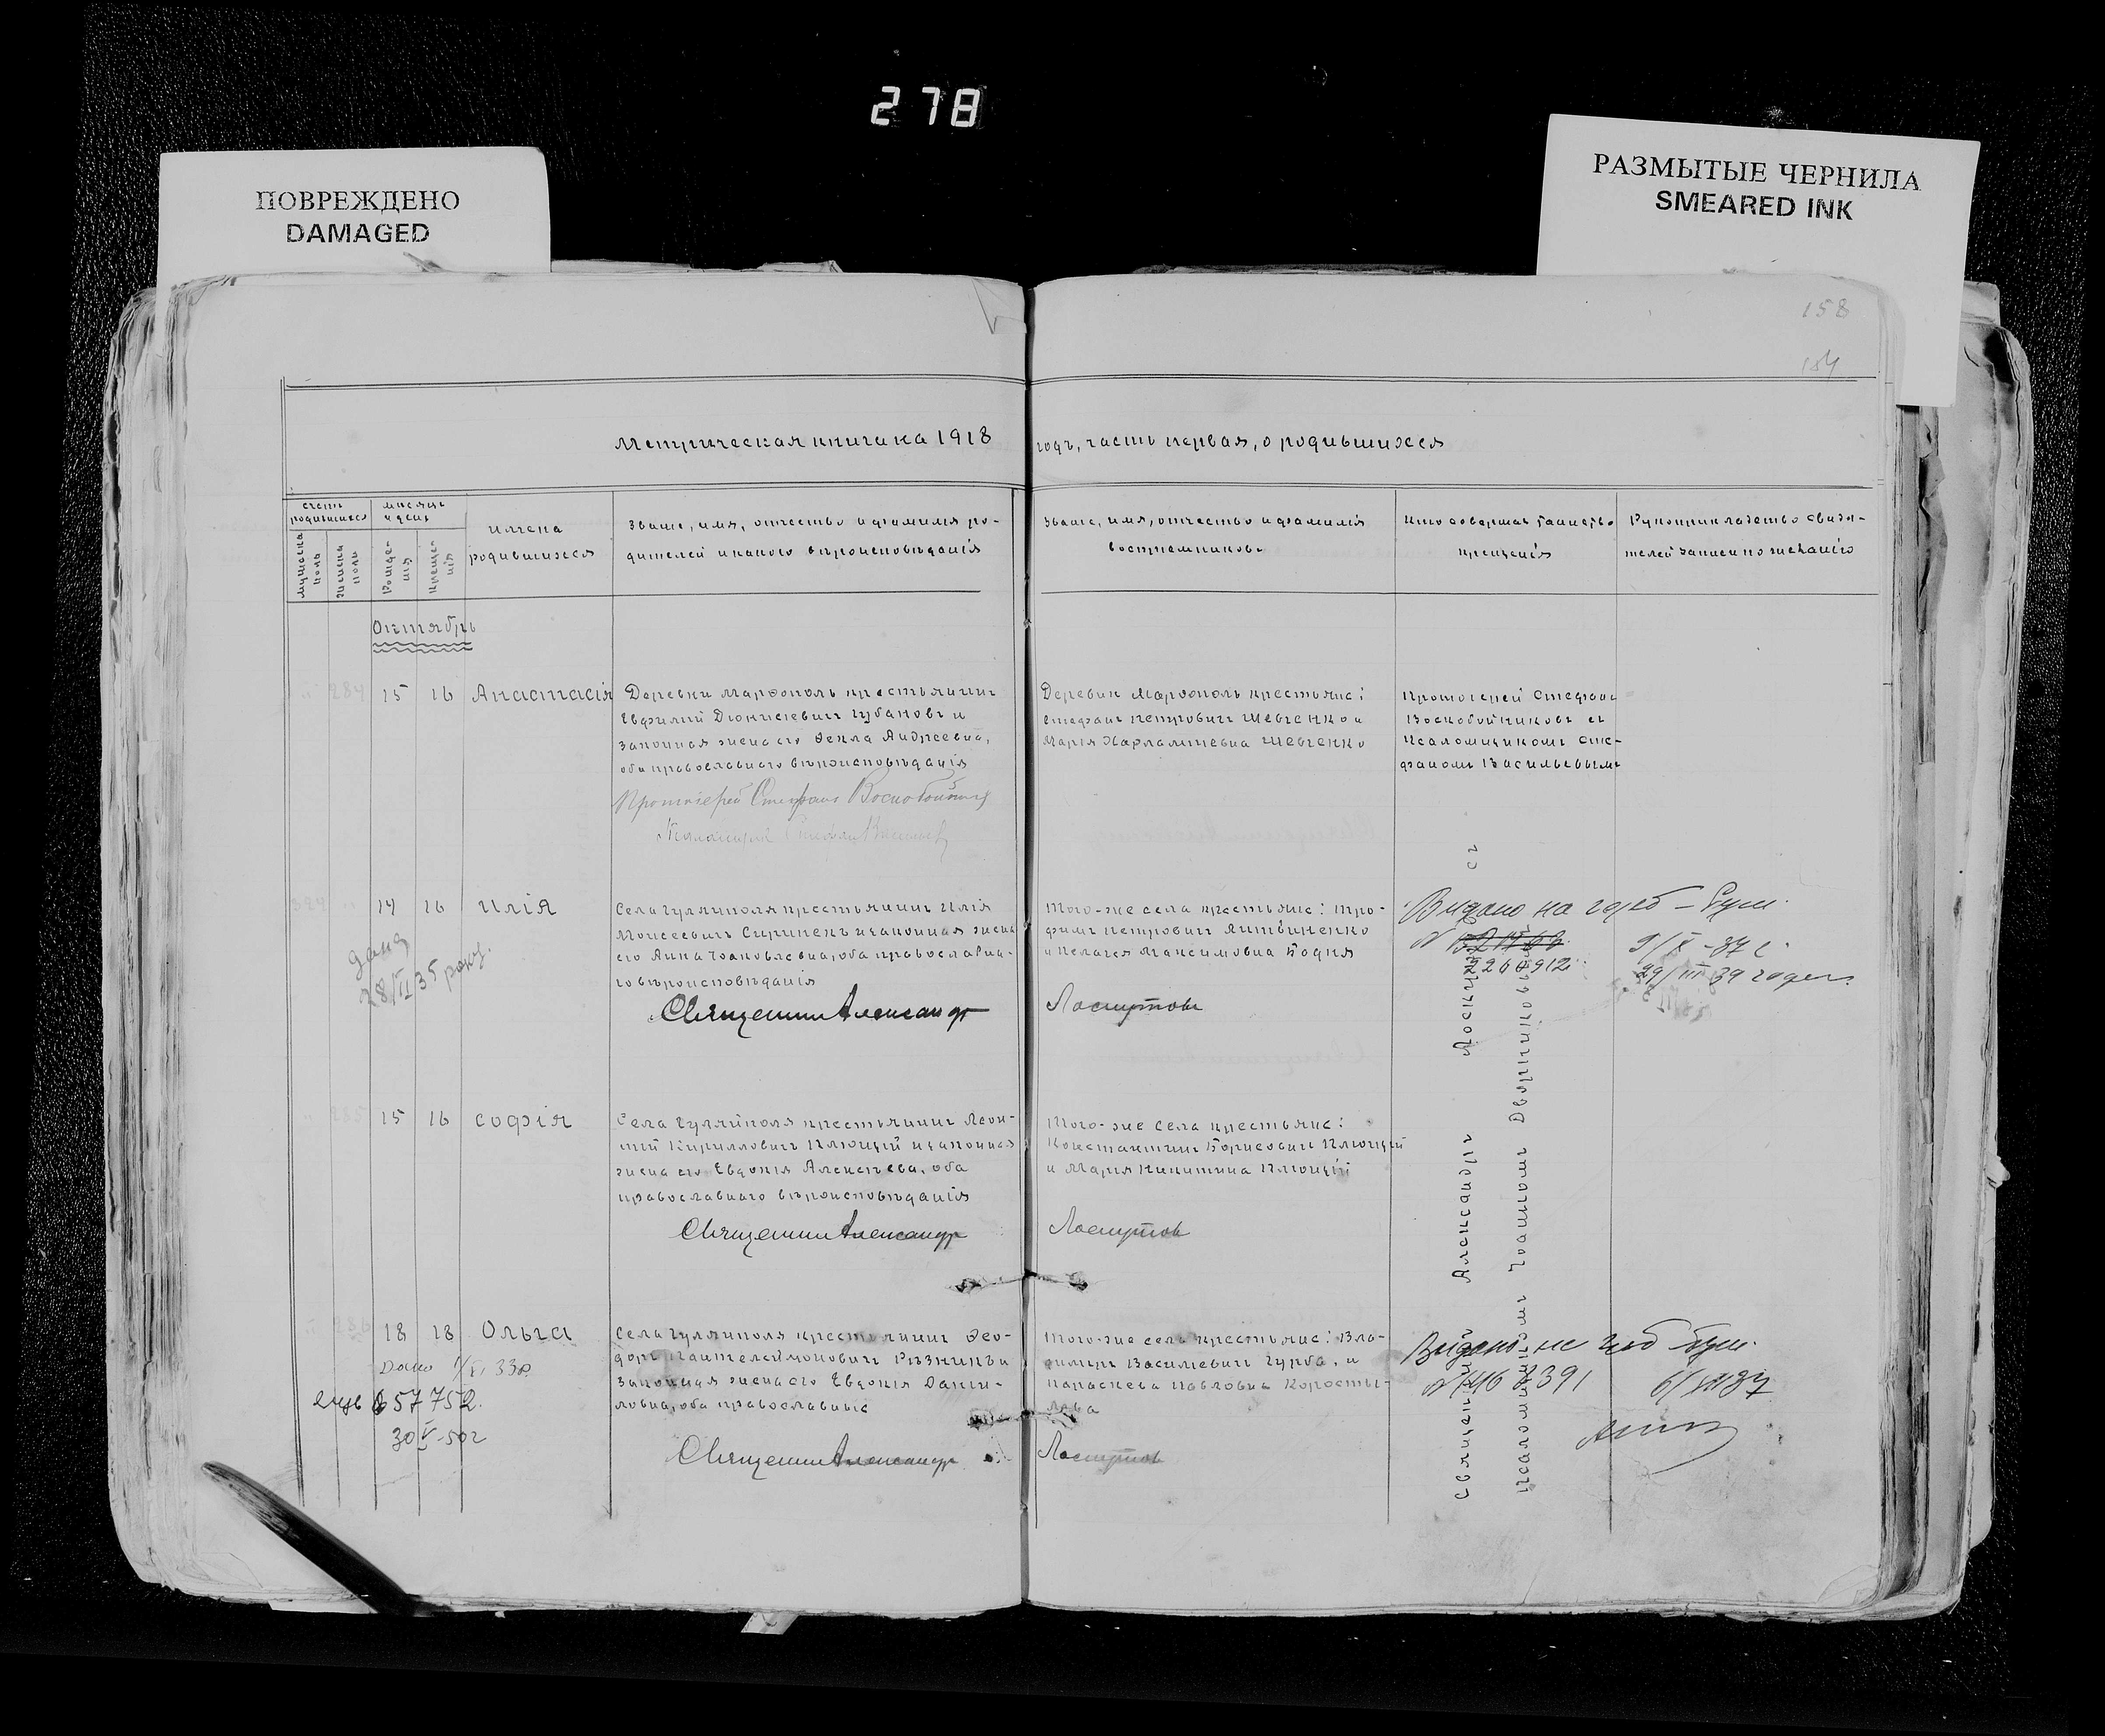 278
ПОВРЕЖДЕНО
DAMAGED
РАЗМЫТЫЕ ЧЕРНИЛА
SMEARED INK
158
154
Метрическая книга на 1918 годъ, часть первая, о родившихся
счетъ родившихся
мѣсяцъ и день
мужеска пола
женска пола
Рожде-
нія
Креще-
нія
имена
родившихся
Званіе, имя, отчество и фамилія ро-
дителей и какого вѣроисповѣданія
Званіе, имя, отчество и фамилія
воспріемниковъ
Кто совершалъ таинство
крещенія
Рукоприкладство свидѣ-
телей записи по желанію
Октябрь
284 15 16 Анастасія
Деревни Марфополь крестьянинъ
Евфимій Діонисіевичъ Губановъ и
законная жена его Фекла Андреевна,
оба православнаго вѣроисповѣданія
Протоіерей Стефанъ Воскобойниковъ
Псаломщикъ Стефанъ Васильевъ
Деревни Марфополь крестьяне:
Стефанъ Петровичъ Шевченко и
Марія Харлампіевна Шевченко
Протоіерей Стефанъ
Воскобойниковъ съ
Псаломщикомъ Сте-
фаномъ Васильевымъ
14 16 Илія
дана
28/II 35 року.
Села Гуляйполя крестьянинъ Илія
Моисеевичъ Скрипекъ и законная жена
его Анна Іоановлевна, оба православна-
го вѣроисповѣданія
Священникъ Александръ Лоскутовъ
Того-же села крестьяне: Тро-
фимъ Петровичъ Литвиненко
и Пелагея Максимовна Бодня
Видано на
N
2260912
9/X-37 г.
29/III 39 года
285 15 16 Софія
Села Гуляйполя крестьянинъ Леон-
тій Кирилловичъ Плющій и законная
жена его Евдокія Алексѣева, оба
православнаго вѣроисповѣданія
Священникъ Александръ Лоскутовъ
Того-же села крестьяне:
Константинъ Борисовичъ Плющій
и Марія Никитина Плющій
286 18 18 Ольга
Дано 33р.
657752.
30 V-50г
Села Гуляйполя крестьянинъ Фео-
доръ Пантелеймоновичъ Рѣзникъ и
законная жена его Евдокія Дани-
ловна, оба православные
Священникъ Александръ Лоскутовъ
Того-же села крестьяне: Вла-
диміръ Василіевичъ Гурба, и
Параскева Павловна Коросты-
лева
Видано
N
Священникъ Александръ Лоскутовъ съ
Псаломщикомъ Іоанномъ Дворниковымъ